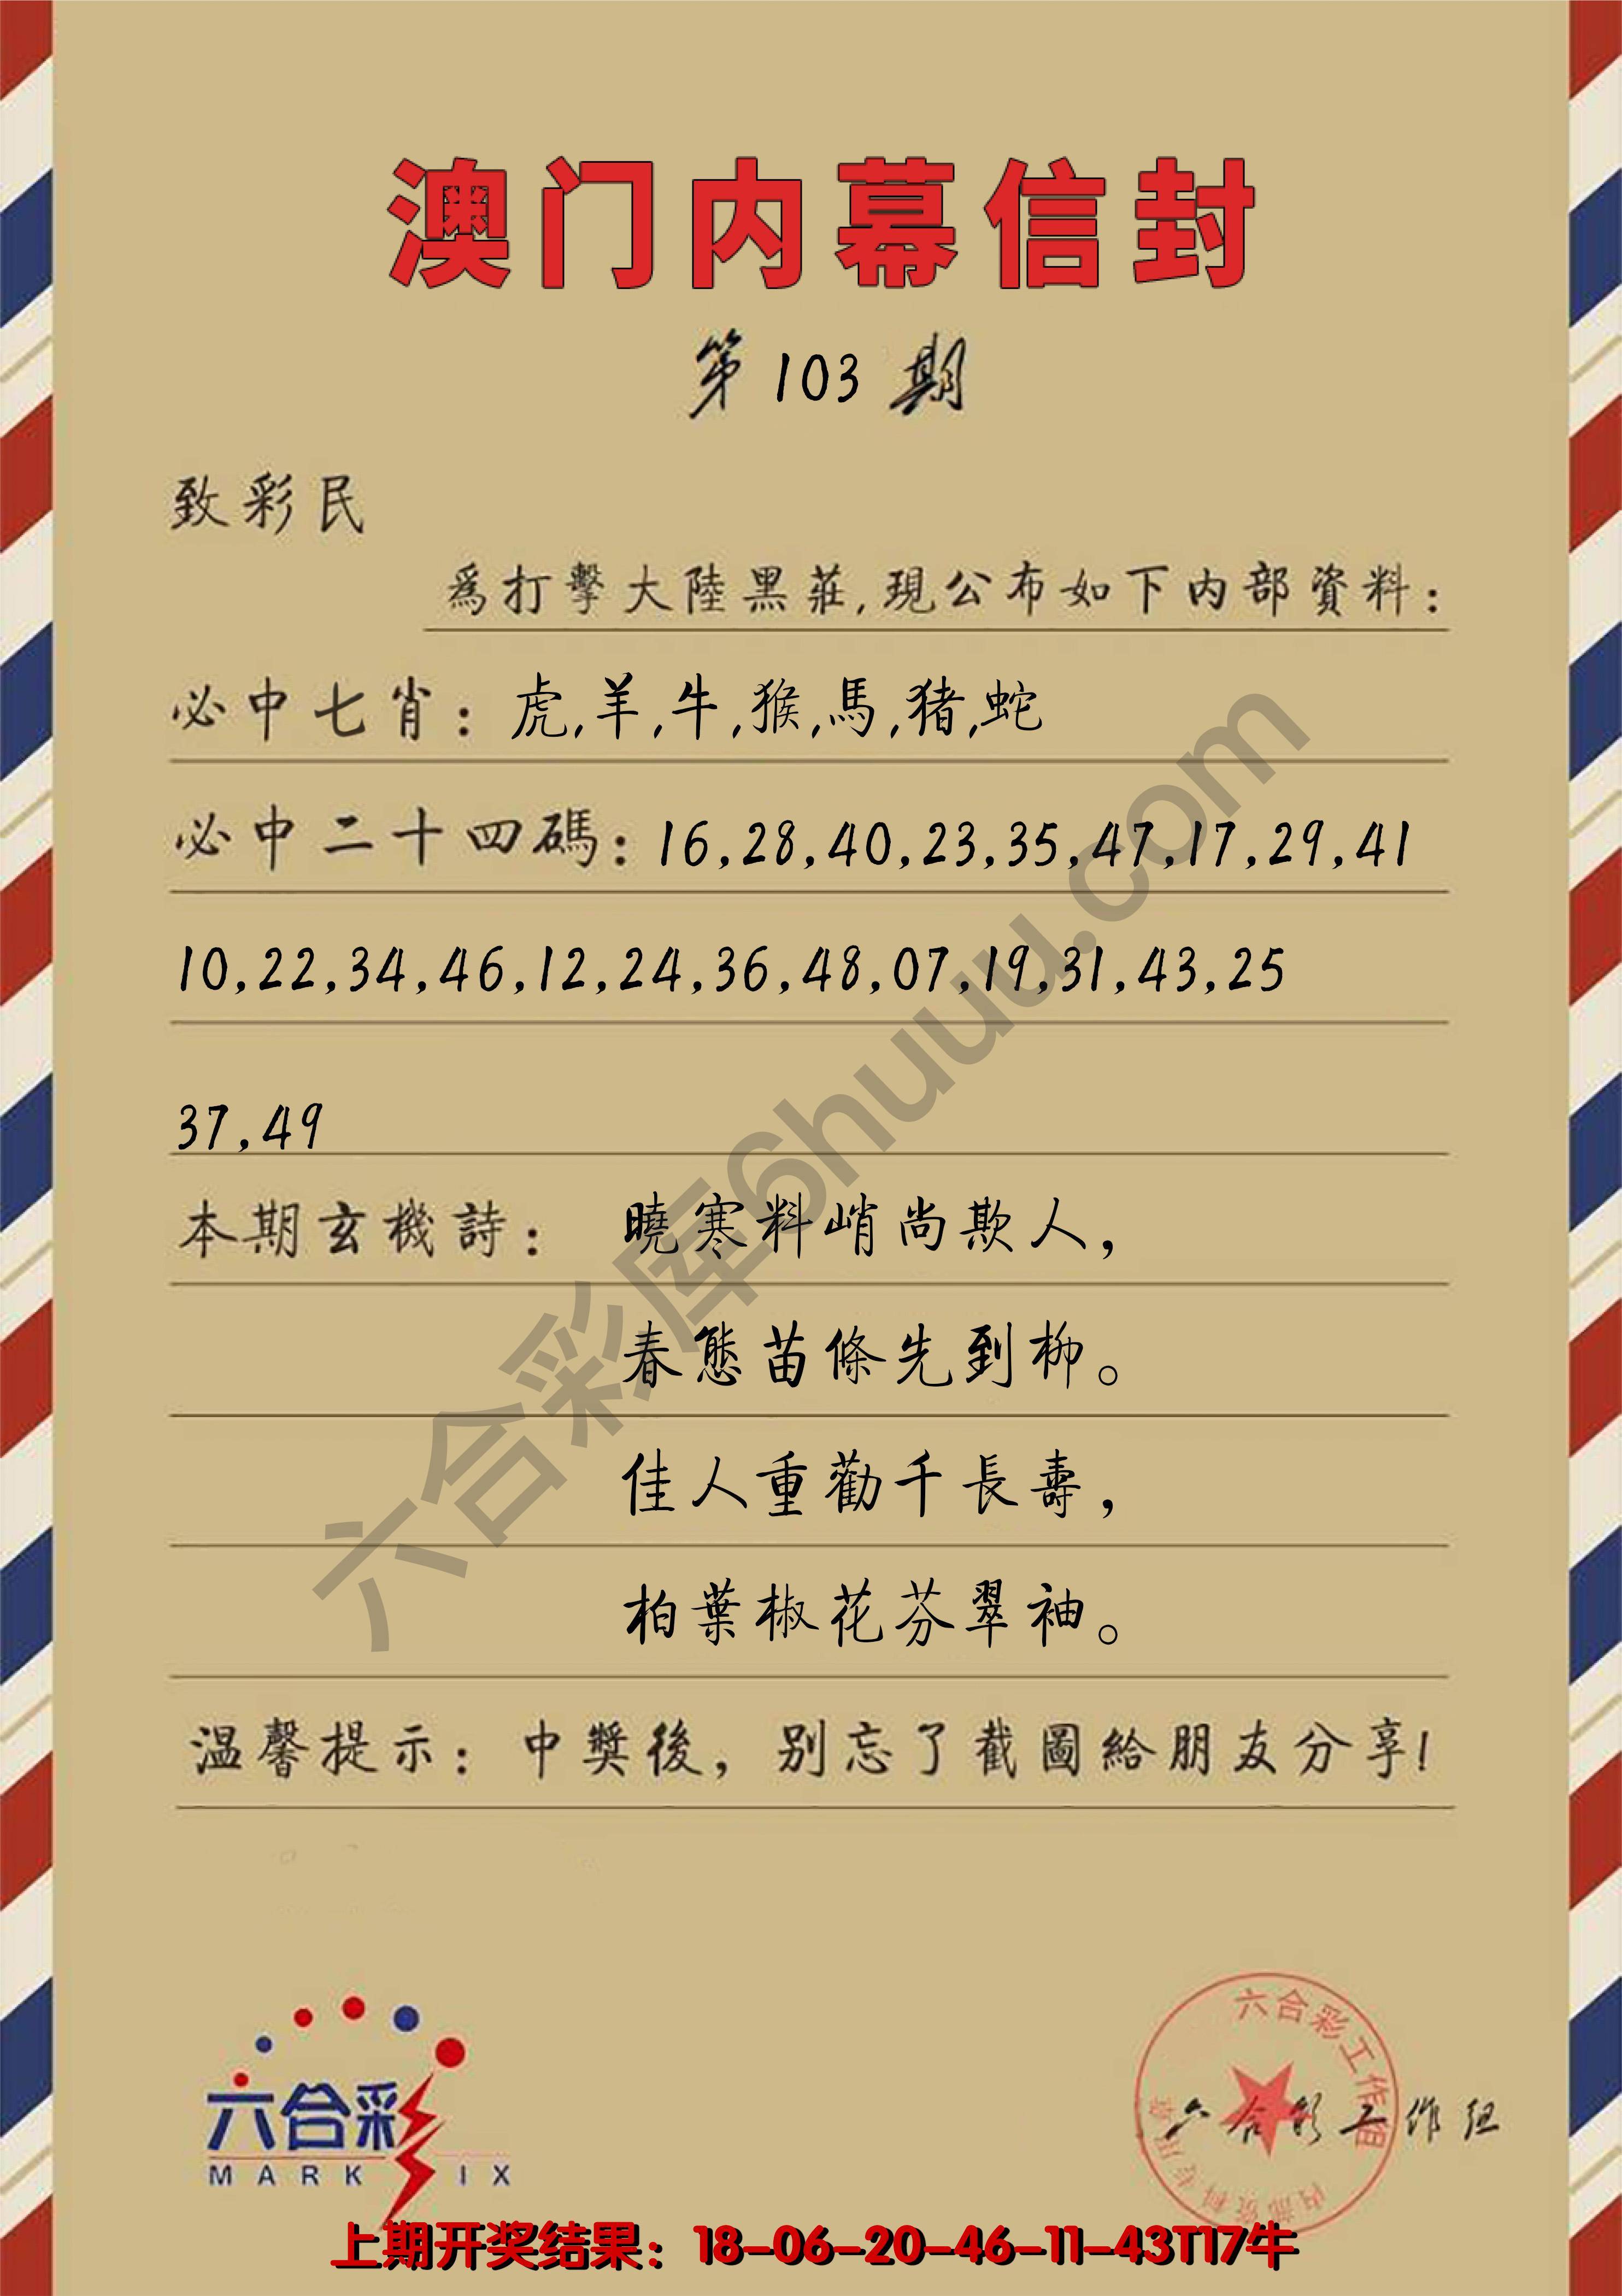 澳门内幕信封
第103期
致彩民
為打擊大陸黑莊,現公布如下内部資料:
必中七肖:虎,羊,牛,猴,馬,猪,蛇
必中二十四碼:16,28,40,23,35,47,17,29,41
10,22,34,46,12,24,36,48,07,19,31,43,25
37,49
本期玄機詩: 曉寒料峭尚欺人，
春態苗條先到柳。
佳人重勸千長壽，
柏葉椒花芬翠袖。
温馨提示:中獎後，别忘了截圖給朋友分享!
六合彩库6huuu.com
六合彩
MARK SIX
六合彩工作组
内部资料专用章
六合彩工作组
上期开奖结果：18-06-20-46-11-43T17牛